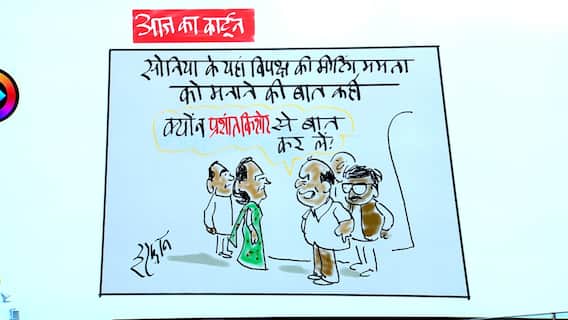 आज का कार्टून
सोनिया के यहां विपक्ष की मीटिंग ममता
को मनाने की बात कही
क्यों न प्रशांत किशोर से बात
कर लें?
इरफ़ान